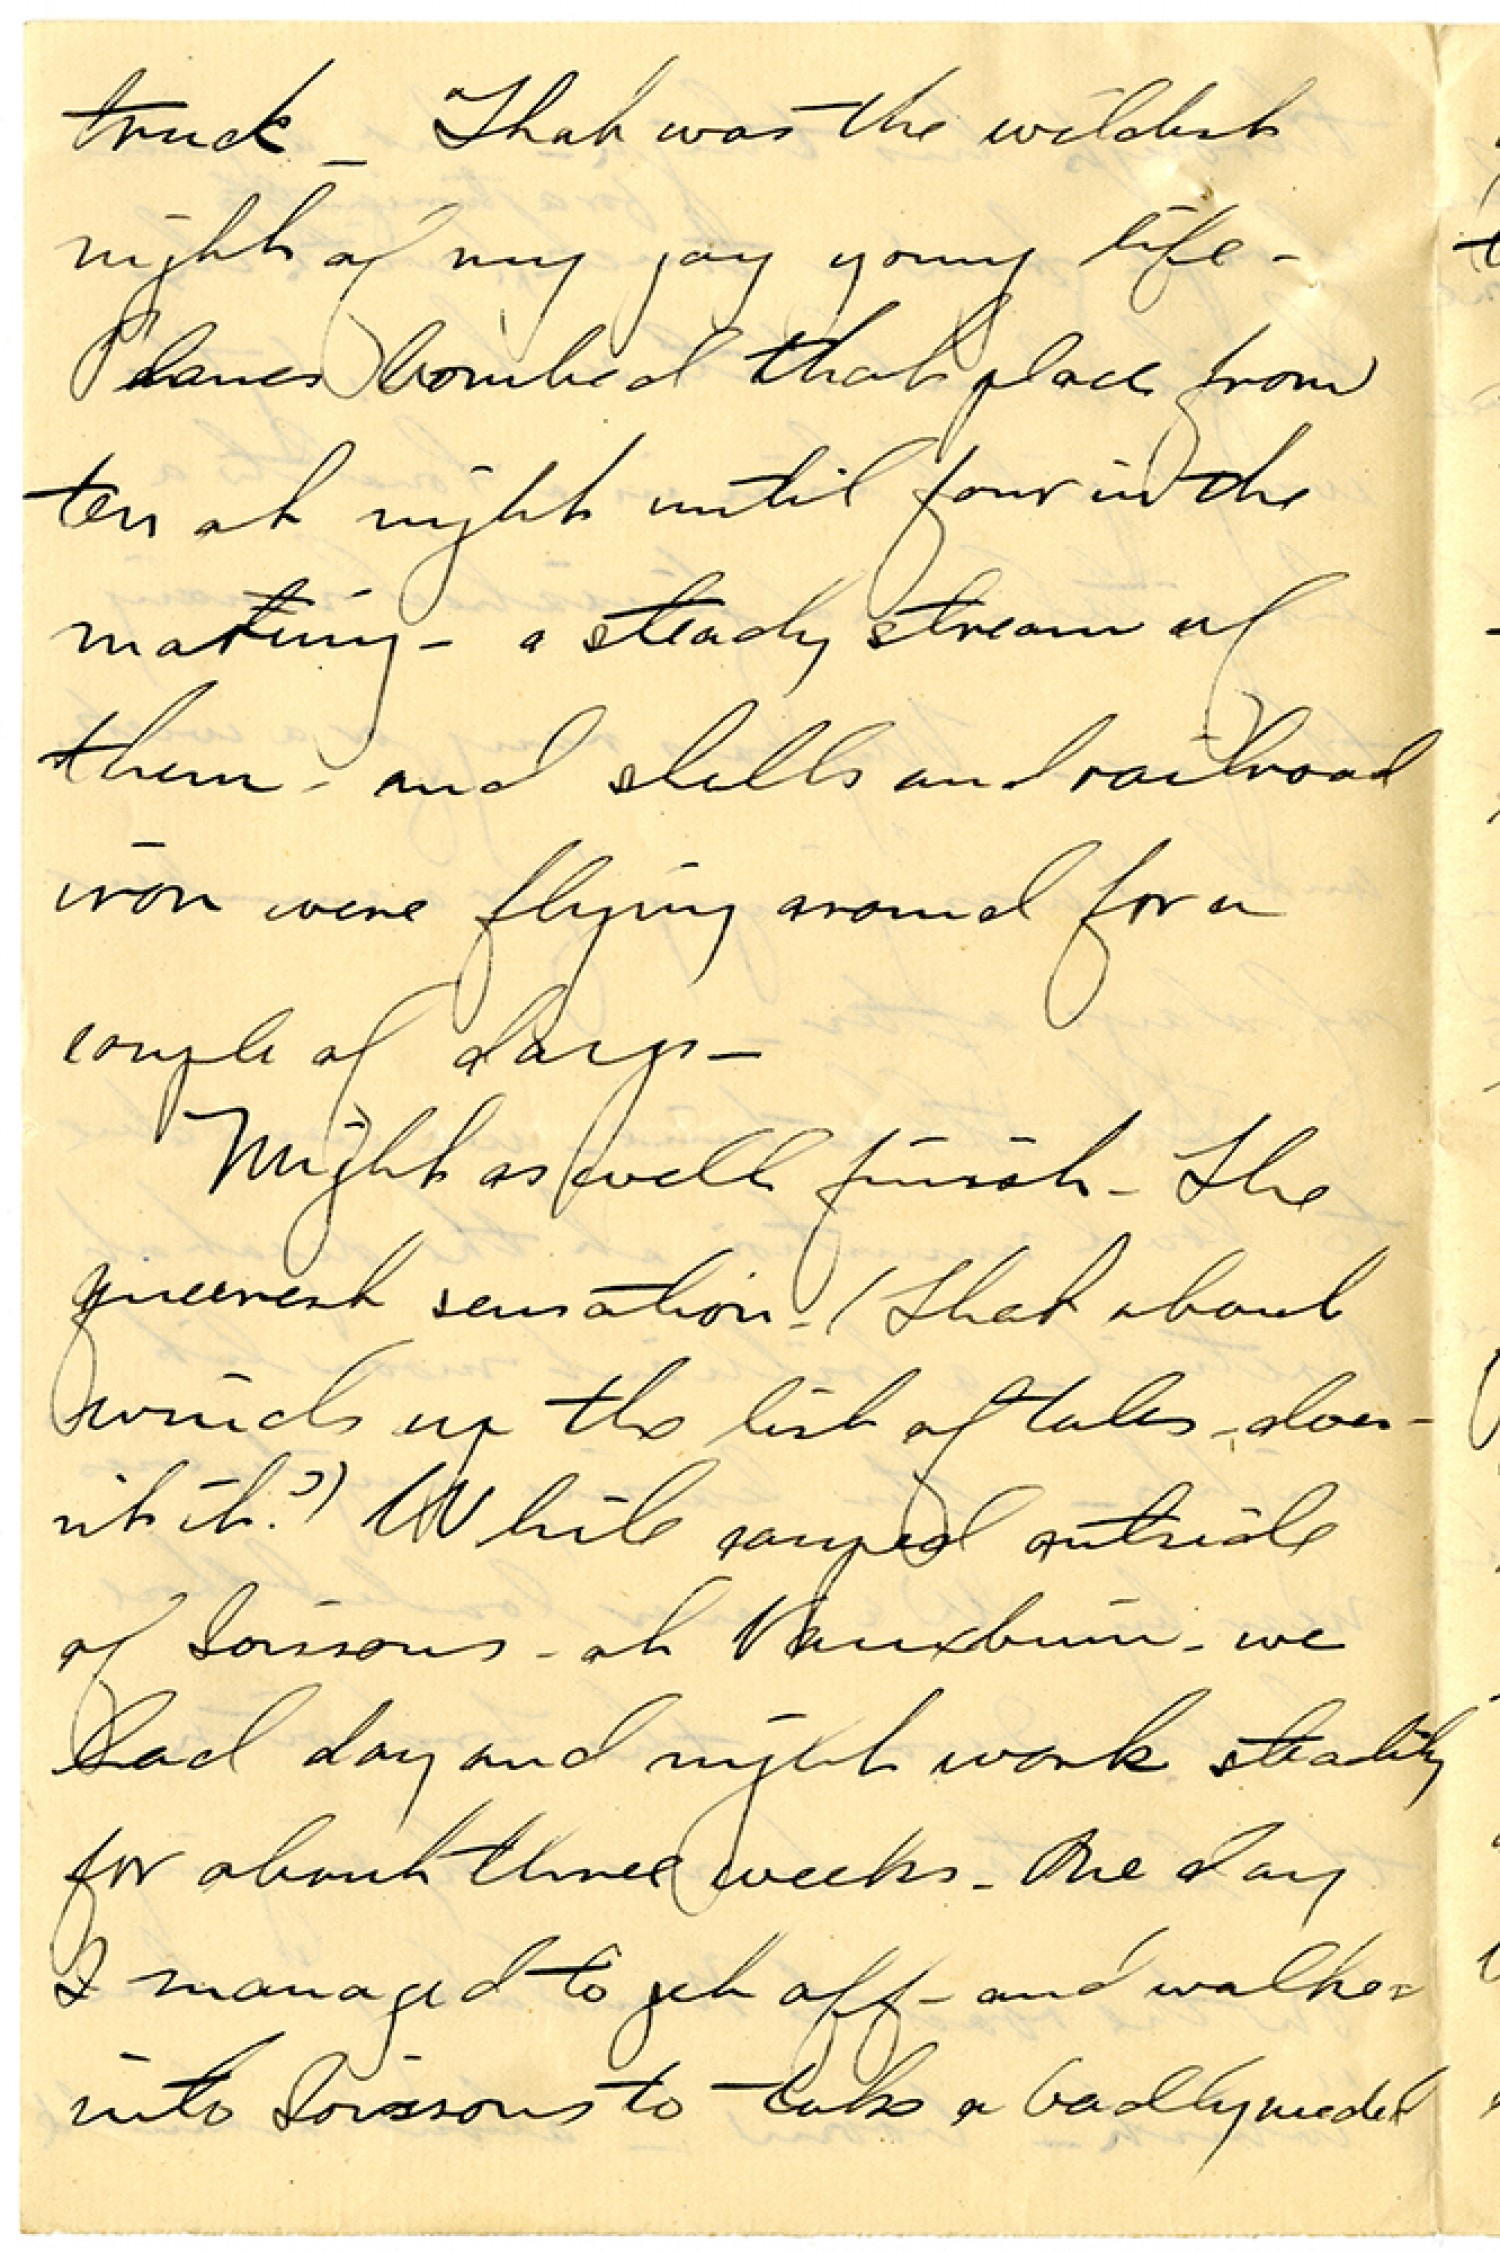 truck – That was the wildest
night of my gay young life –
Planes bombed that place from
ten at night until four in the
morning – a steady stream of
them – and shells and railroad
iron were flying around for a
couple of days –
Might as well finish – The
queerest sensation – (That about
winds up the list of tales – does-
n't it?) While camped outside
of Soissons – at Vauxbuin – we
had day and night work steadily
for about three weeks – One day
I managed to get off – and walked
into Soissons to take a badly needed